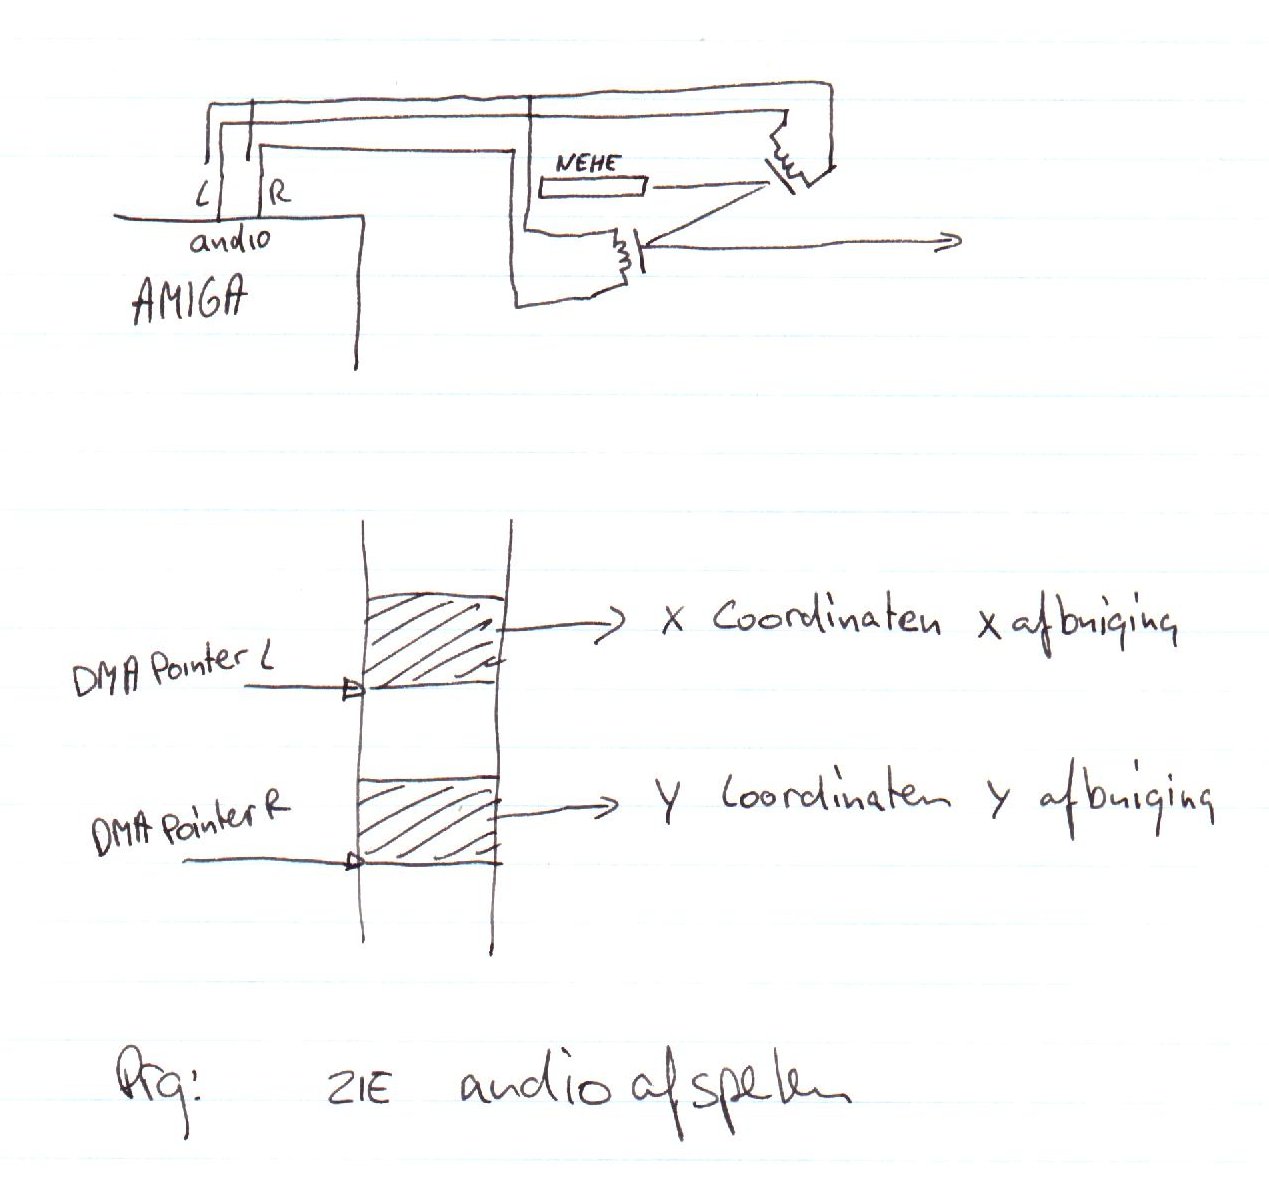 NEHE
L R
audio
AMIGA
X Coordinaten X afbuiging
DMA Pointer L
Y Coordinaten Y afbuiging
DMA Pointer R
Prg: ZIE audio afspelen